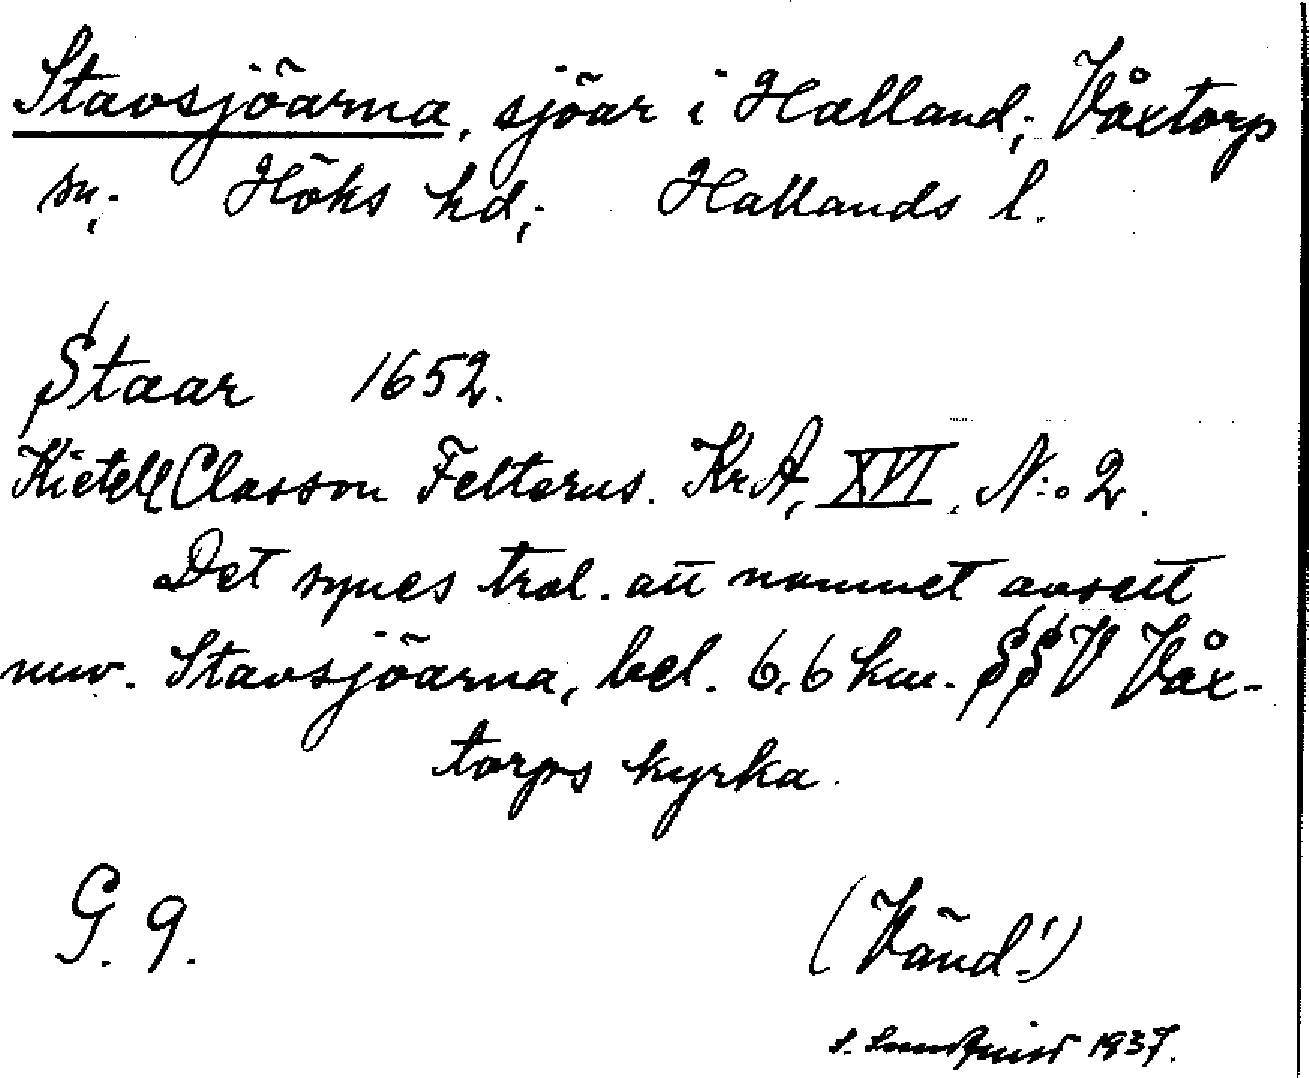 Stavsjöarna, sjöar i Halland; Våxtorp
sn; Höks hd; Hallands l.
Staar 1652.
Kietell Classon Felterus. KrA, XVI, N:o 2.
Det synes trol. att namnet avsett
nuv. Stavsjöarna, bel. 6,6 km. SSV Våx-
torps kyrka.
G. 9.
(Vänd!)
1937.